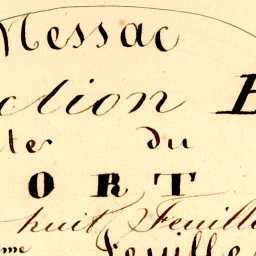 Messac
ction B
te du
ORT
huit Feuille
me Feuille